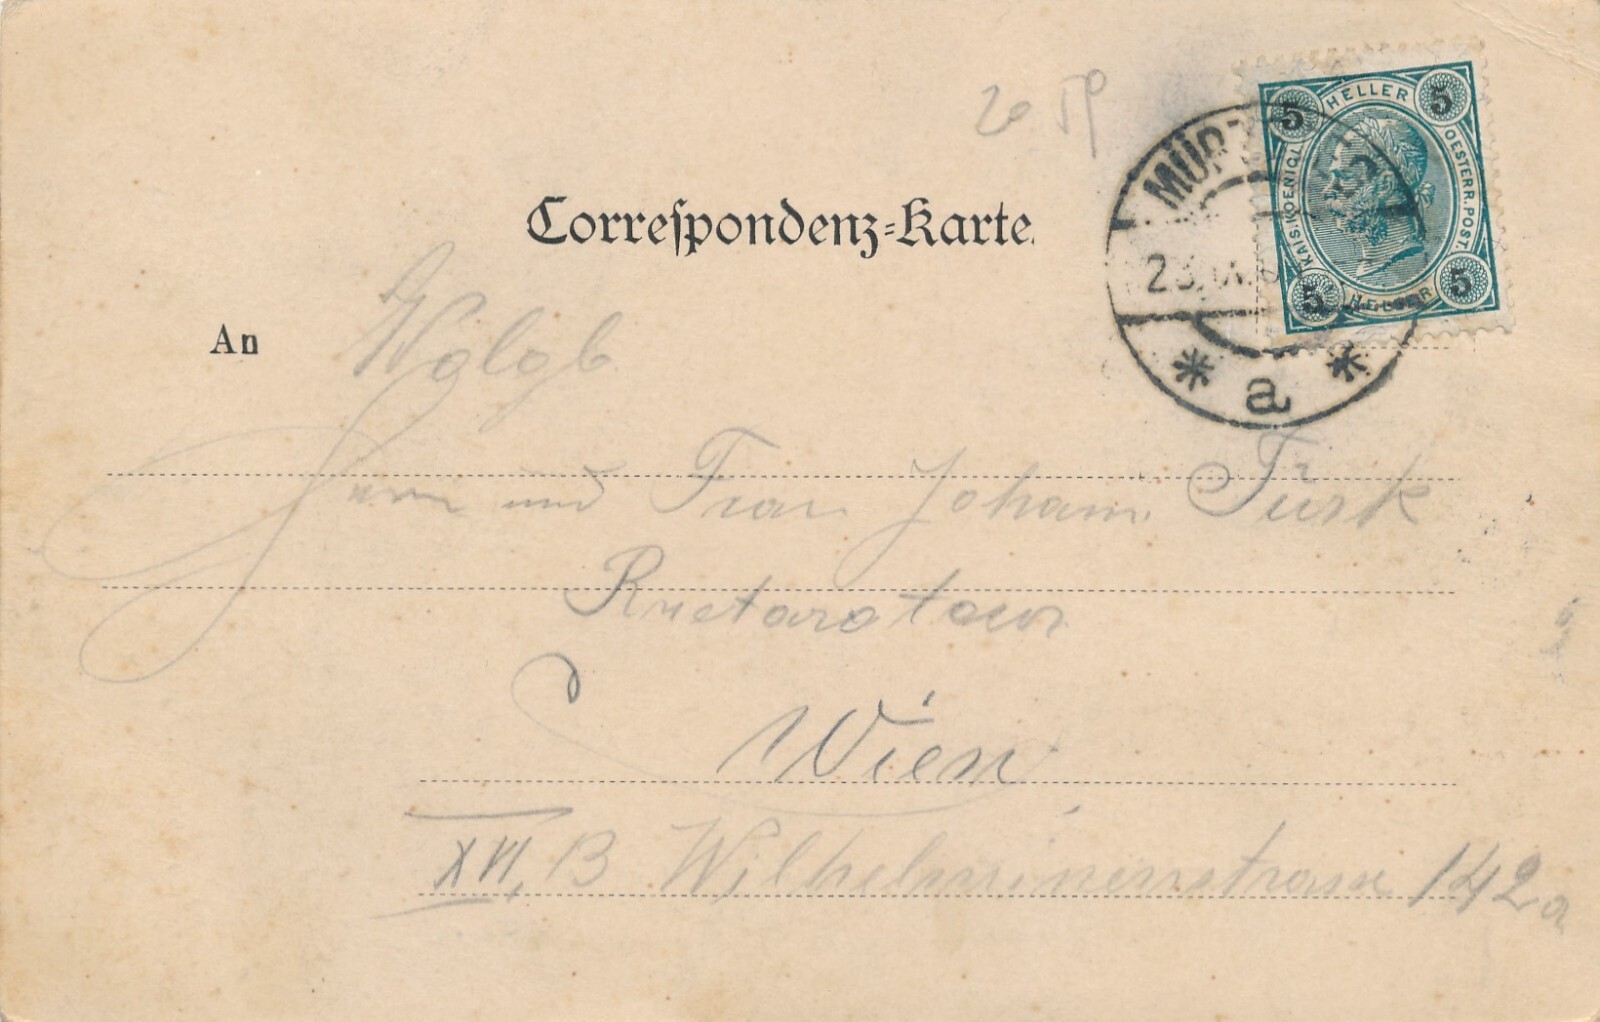 20
5 HELLER 5
KAIS. KOENIGL. OESTERR. POST.
5 HELLER 5
23.
* a *
Correſpondenz-Karte.
An Wolgb
Herrn und Frau Johann Türk
Wien
XVI, B Wilhelminenstrasse 142a